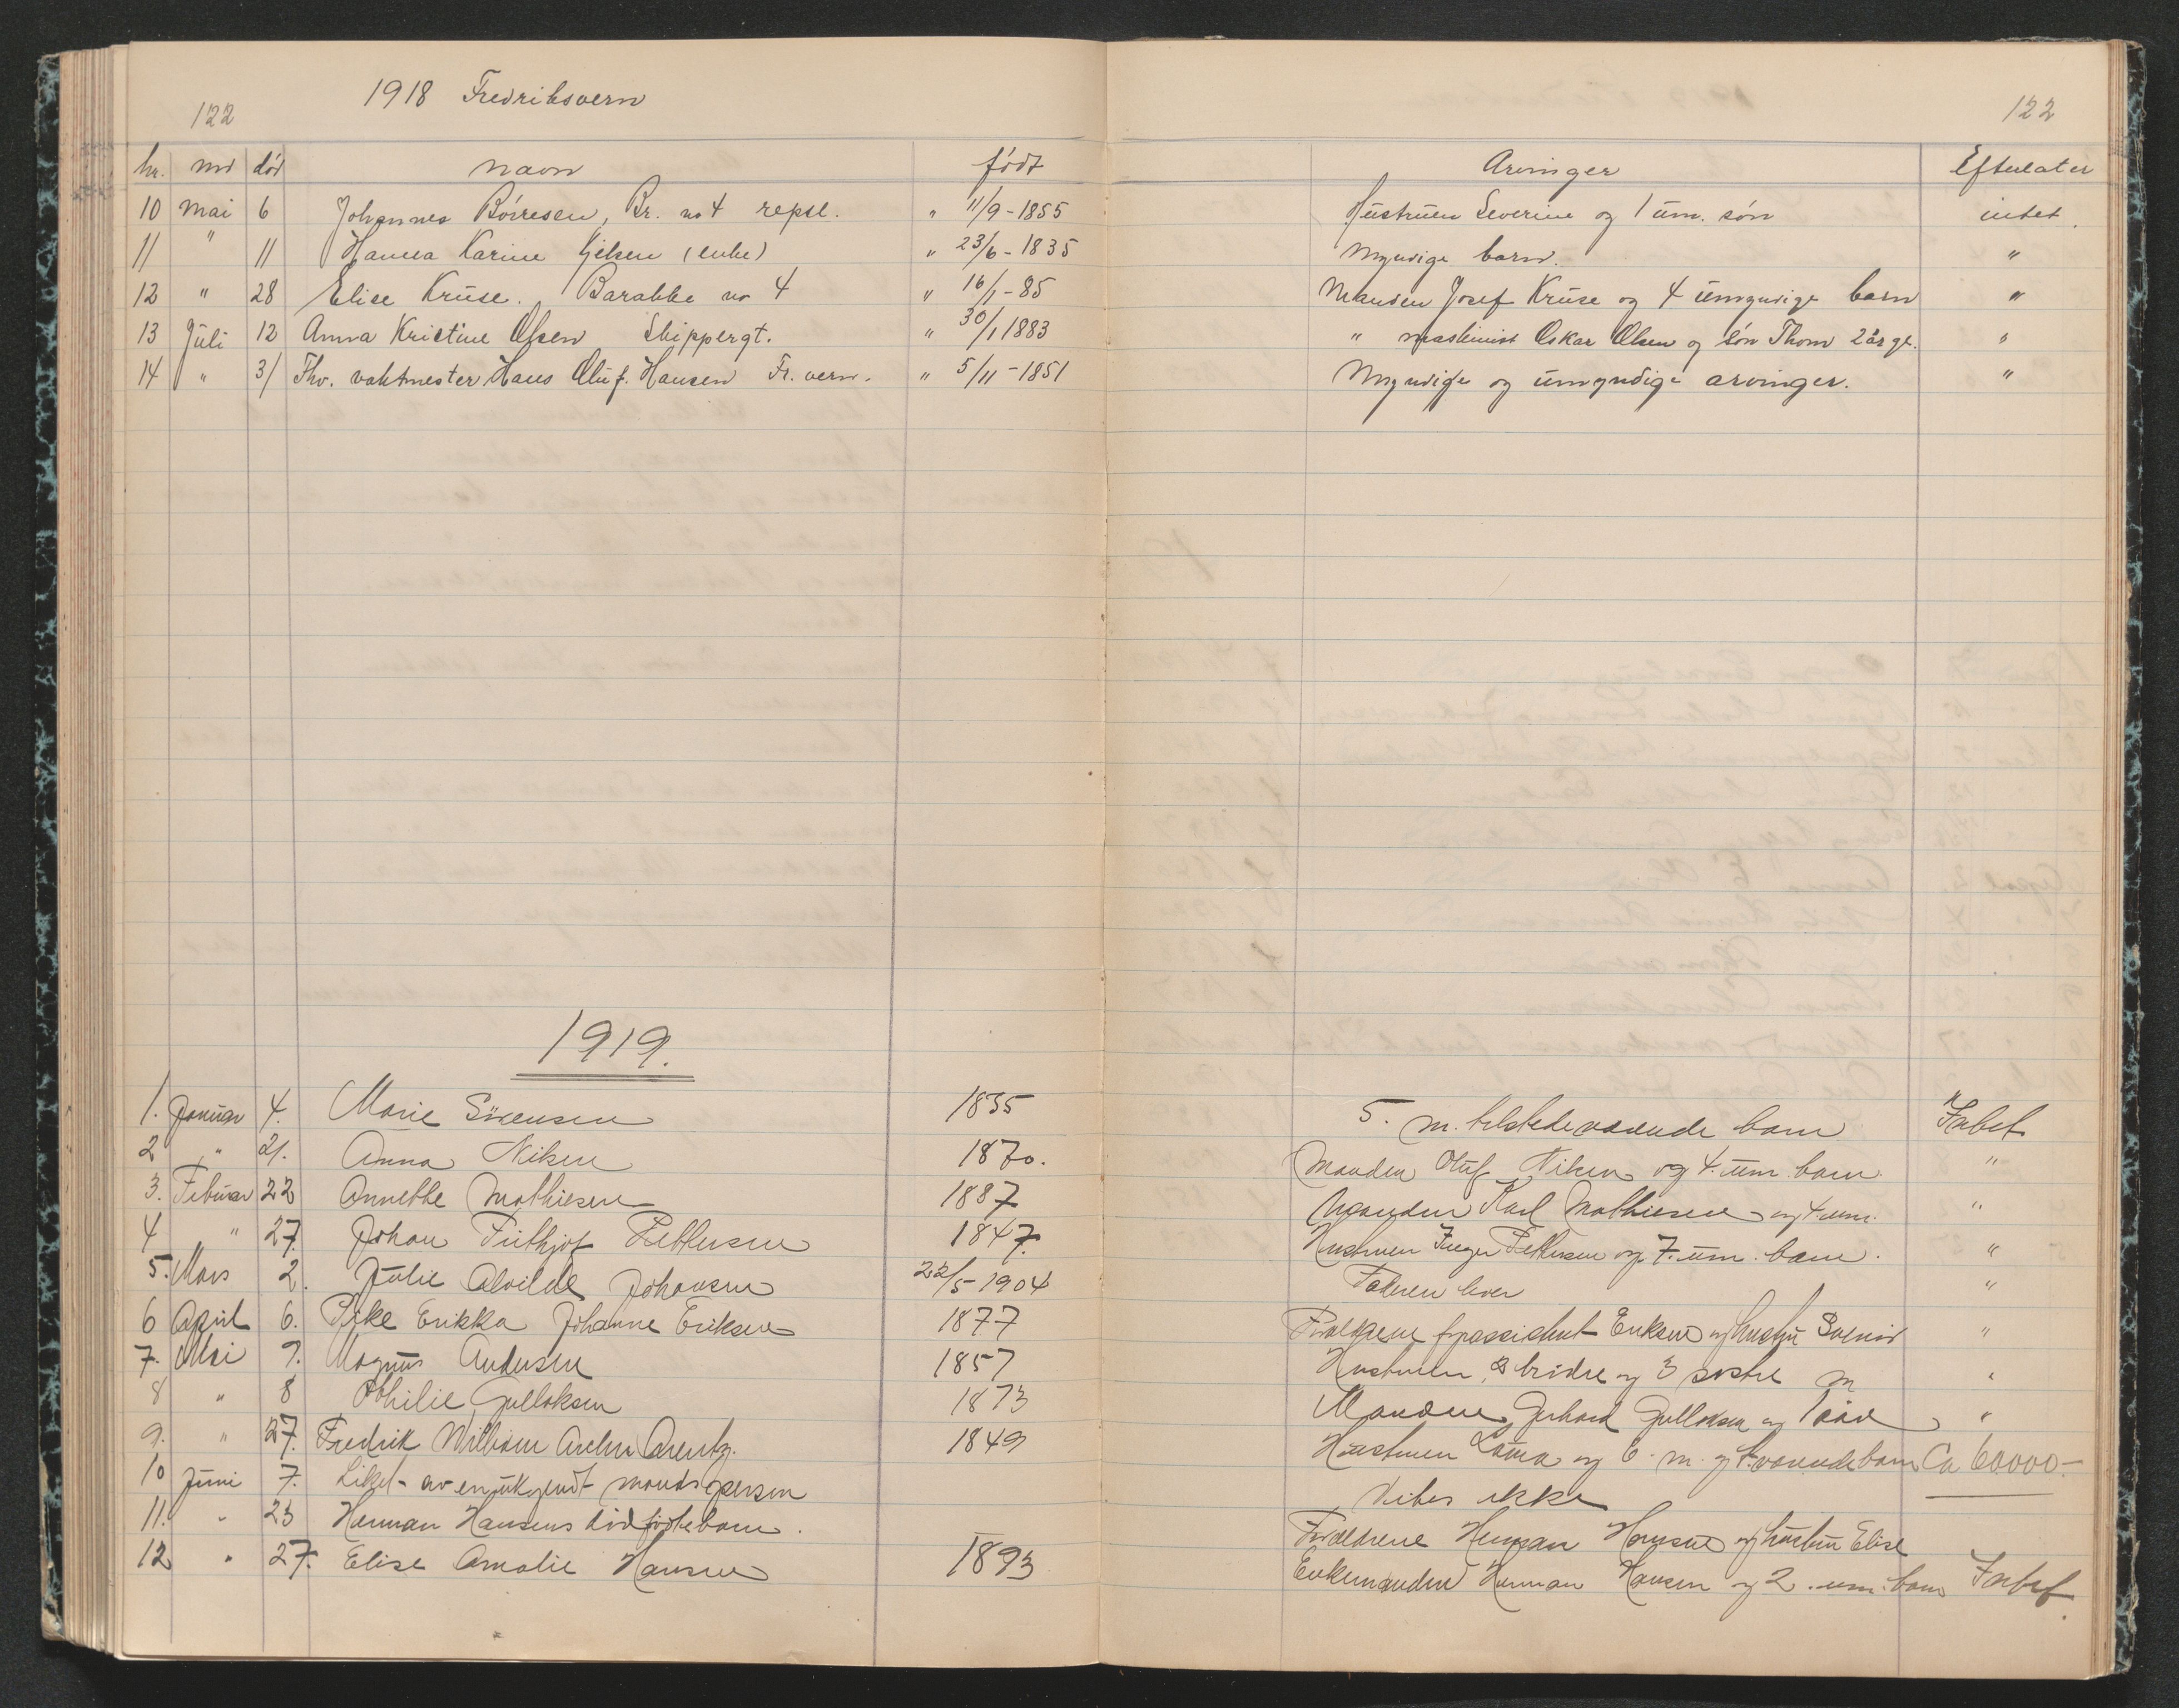 1918 Fredriksvern
122 122
nr. md død navn født Arvinger Efterlater
10 Mai 6 Johannes Börresen, Br. no 4 repsl. " 11/9-1855 Hustruen Severine og 1 um. søn intet.
11 " 11 Hanna Karine (enke) " 23/6-1835 Myndige barn. "
12 " 28 Elise Kruse. Barakke no 4 " 16/1-85 Manden Josef Kruse og 4 umyndige barn "
13 Juli 12 Anna Kristine Olsen Skippergt. " 30/1 1883 " maskinist Oskar Olsen og søn Thom 2 år gl. "
14 " 31 Fhv. vaktmester Hans Oluf Hansen Fr. vern. " 5/11-1851 Myndige og umyndige arvinger. "
1919.
1. Januar 4. Marie Sörensen 1835 5. m. tilstedeværende barn Intet
2 " 21. Anna Nilsen 1870. Manden Oluf Nilsen og 4. um. barn "
3. Februar 22 Annethe Mathiesen 1887 Manden Karl Mathiesen og 4 um. "
4 " 27. Johan Frithjof Pettersen 1847. Hustruen Inger Pettersen og 7. um. barn. "
5. Mars 2. Julie Alvilde Johansen 22/5-1904 Faderen lever "
6 April 6. Pike Erikka Johanne Eriksen 1877 Forældrene Eriksen og hustru "
7. Mai 7. Magnus Andersen 1857 Hustruen, 2 brödre og 3 søstre m "
8 " 8 Othilie Gulloksen 1873 Manden Gerhard Gulloksen og 1 "
9. " 27. Fredrik William Arentz. 1849 Hustruen og 6. m. og barn Ca 60000.-
10 Juni 7. Liket av en ukjendt mandsperson Vites ikke
11. " 23 Herman Hansens dödfödte barn. Forældrene Herman Hansen og hustru Elise
12 " 27. Elise Amalie Hansen 1893 Enkemanden Herman Hansen og 2. um. barn Intet.